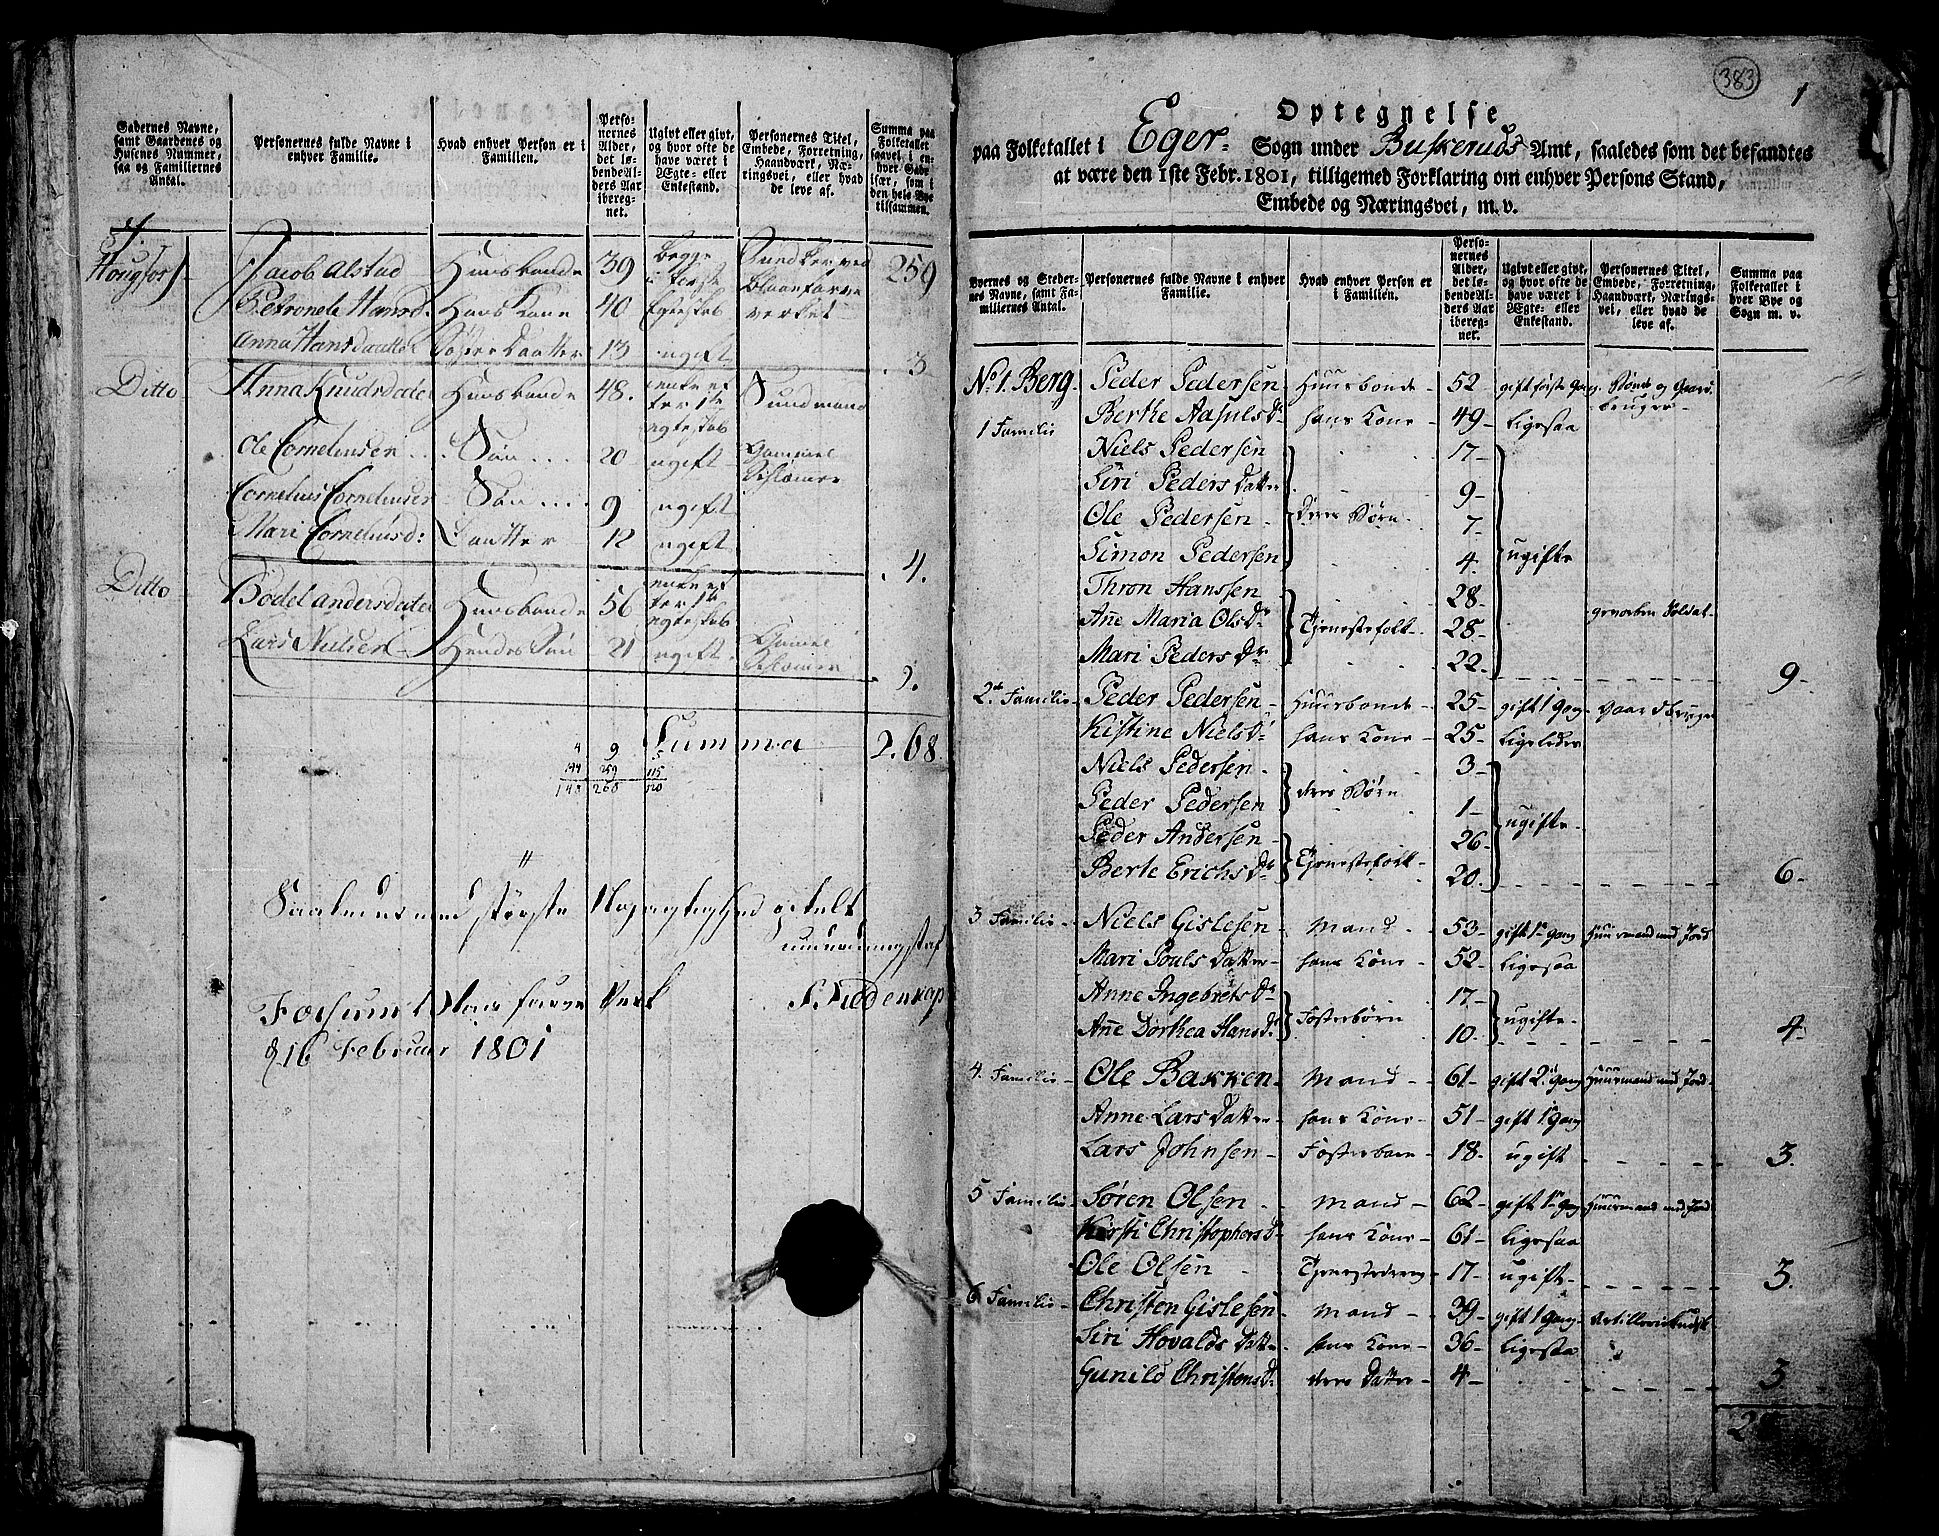 Gadernes Navne, samt Gaardenes og Husenes Nummer, saa og Familiernes Antal.
Personernes fulde Navne i enhver Familie.
Hvad enhver Person er i Familien.
Personernes Alder, det løbende Alders Aar iberegnet.
Ugivt eller givt, og hvor ofte de have været i Ægte- eller Enkestand.
Personernes Titel, Embede, Forretning, Haandværk, Næringsvei, eller hvad de leve af.
Summa paa Folketallet saavel i enhver Gade især, som i den hele Bye tilsammen.
Hougfos Jacob Alstad Huusbonde 39 Begge i første Egteskab 259
Petronele Hansd. Hans Kone 40
Anna Hansdaatter 13 ugift 3
Ditto Anna Knudsdater Huusbonde 48.
Ole Corneliusen Søn 20 ugift
Cornelius Corneliusen Søn 9 ugift
Mari Corneliusd: Daatter 12 ugift 4.
Ditto Bodel andersdater Huusbonde 56
Lars Nielsen Hendes Søn 21 ugift 2.
9 Summa 268.
4 5
144 259 115
148 268 120
Saaledes med største Nøjagtighed optelt
Fossum Blaafarve Verk
d. 16 Februar 1801
383
1
Optegnelse
paa Folketallet i Eger Sogn under Buskeruds Amt, saaledes som det befandtes
at være den 1ste Febr. 1801, tilligemed Forklaring om enhver Persons Stand,
Embede og Næringsvei, m. v.
Byernes og Stedernes Navne, samt Familiernes Antal.
Personernes fulde Navne i enhver Familie.
Hvad enhver Person er i Familien.
Personernes Alder, det løbende Alders Aar iberegnet.
Ugivt eller givt, og hvor ofte de have været i Ægte- eller Enkestand.
Personernes Titel, Embede, Forretning, Haandværk, Næringsvei, eller hvad de leve af.
Summa paa Folketallet i hver Bye og Sogn m. v.
No 1. Berg. Peder Pedersen Huusbonde 52 gift første Gang Bonde og Gaardbruger
1 Familie Berthe Aasulsdr hans Kone 49 Ligesaa
Niels Pedersen 17
Siri Peders Datter 9
Ole Pedersen deres Børn 7
Simon Pedersen 4 ugifte
Thron Hanssen 28 gevorben Soldat
Ane Maria Olsdr Tjenestefolk 28
Mari Pedersdr 22 9
2 Familie Peder Pedersen Huusbonde 25 gift 1 Gang Gaardbruger
Kistine Nielsdr hans Kone 25 Ligeledes
Niels Pedersen 3
Peder Pedersen deres Børn 1
Peder Andersen 26 ugifte
Berte Erichsdr Tjenestefolk 20 6
3 Familie Niels Gislesen Mand 53 gift 1 Gang Huusmand med Jord
Mari Pouls Datter hans Kone 52 Ligesaa
Anne Ingebretsdr 17
Ane Dorthea Hansdr Fosterbørn 10 ugifte 4
4. Familie Ole Bakken Mand 61 gift 2 Gang Huusmand med Jord
Anne Lars Datter hans Kone 51 gift 1 Gang
Lars Johnsen Fosterbarn 18 ugift 3.
5 Familie Søren Olsen Mand 62 gift 1 Gang Huusmand med Jord
Kirsti Christophersdr hans Kone 61 Ligesaa
Ole Olsen Tjenestedreng 17 ugift 3.
6. Familie Christen Gislesen Mand 39 gift 1 Gang
Siri Hovalds Datter hans Kone 36 Ligesaa
Gunild Christensdr deres Datter 4 3
28